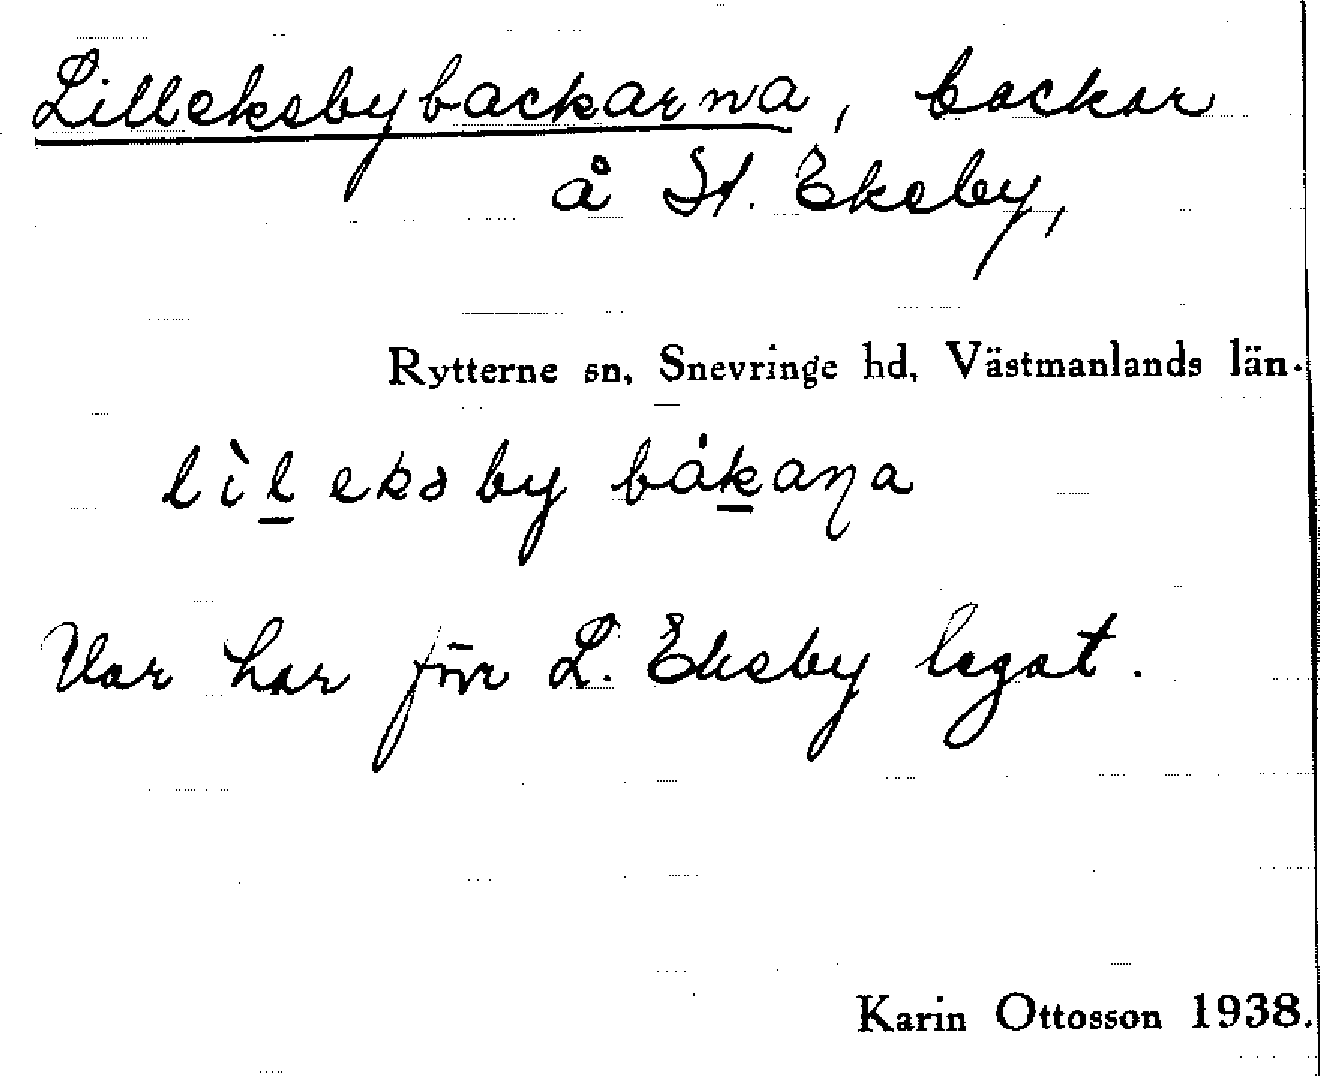 Lilleksbybackarna, backar
å St. Eksby,
Rytterne sn, Snevringe hd, Västmanlands län.
lìl̲ eksby båk̲aɳa
Var har förr L. Eksby legat.
Karin Ottosson 1938.